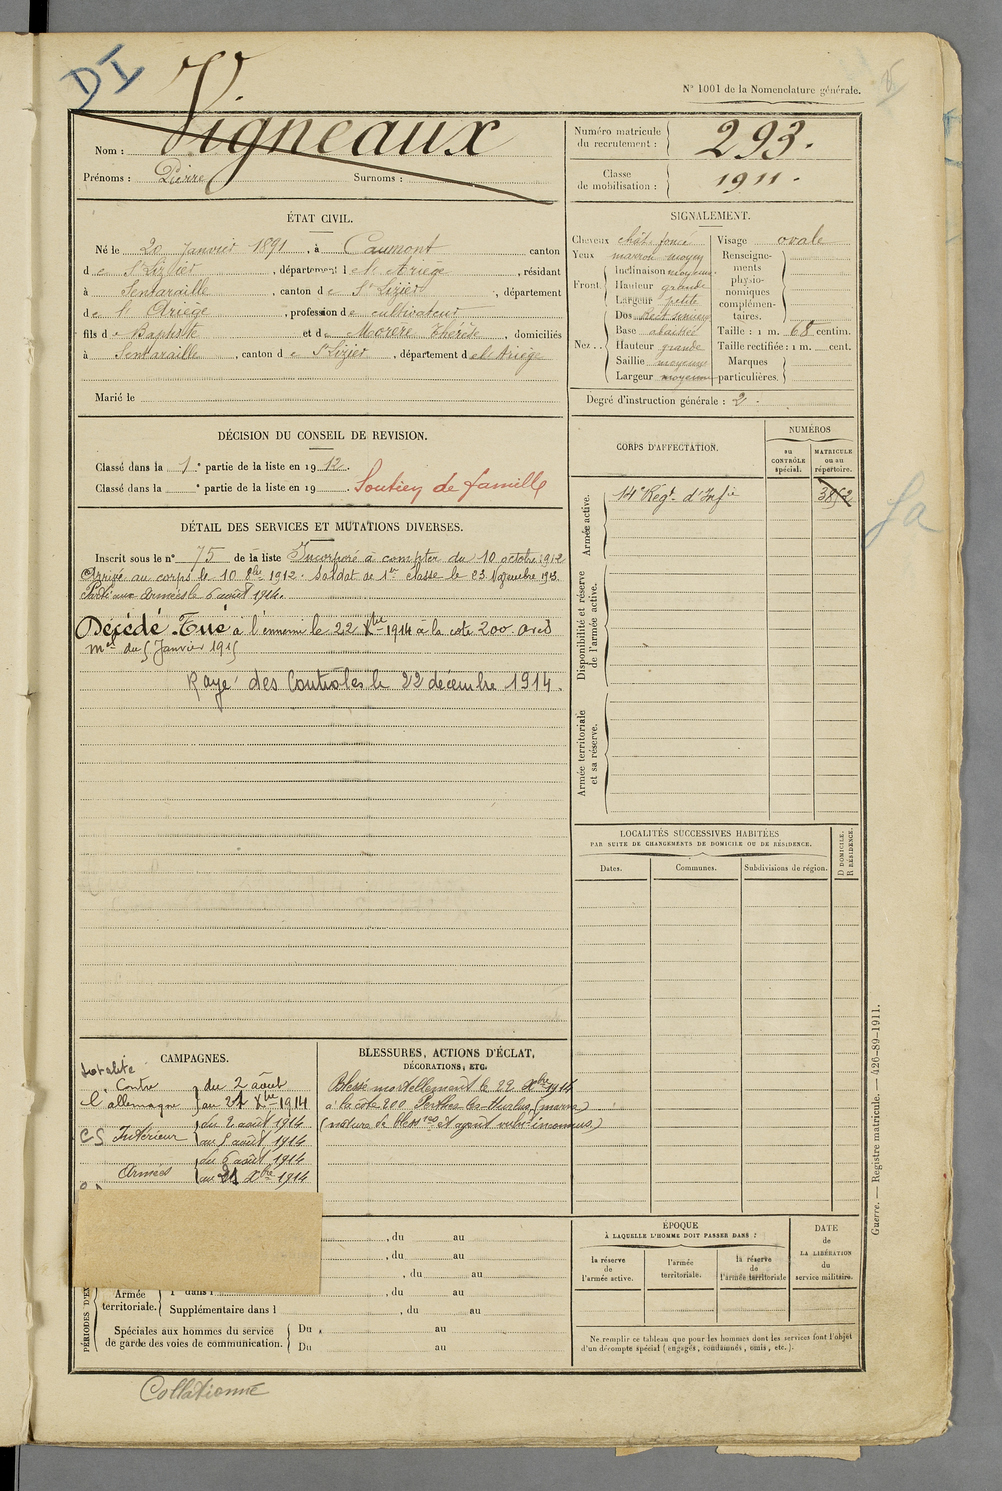 DI
V.
N° 1001 de la Nomenclature générale.
Nom : Vigneaux
Prénoms : Pierre Surnoms :
Numéro matricule du recrutement : 293.
Classe de mobilisation : 1911.
ÉTAT CIVIL.
Né le 20 Janvier 1891, à Caumont canton
de St Lizier, département de l'Ariège, résidant
à Sentaraille, canton de St Lizier, département
de l'Ariège, profession de cultivateur
fils de Baptiste et de Morere Thérèse, domiciliés
à Sentaraille, canton de St Lizier, département de l'Ariège
Marié le
SIGNALEMENT.
Cheveux chât. foncé
Yeux marron moyen
Front. Inclinaison moyenne
Hauteur grande
Largeur petite
Nez.. Dos Rect. sinueux
Base abaissée
Hauteur grande
Saillie moyenne
Largeur moyenne
Visage ovale
Renseignements physionomiques complémentaires.
Taille : 1 m. 68 centim.
Taille rectifiée : 1 m. cent.
Marques particulières.
Degré d'instruction générale : 2.
DÉCISION DU CONSEIL DE REVISION.
Classé dans la 1e partie de la liste en 1912.
Classé dans la e partie de la liste en 19 . Soutien de famille
CORPS D'AFFECTATION.
NUMÉROS
au CONTRÔLE spécial.
MATRICULE ou au répertoire.
Armée active.
14e Régt. d'Infie 3852
Disponibilité et réserve de l'armée active.
Armée territoriale et sa réserve.
DÉTAIL DES SERVICES ET MUTATIONS DIVERSES.
Inscrit sous le n° 75 de la liste Incorporé à compter du 10 octobre 1912
Arrivé au corps le 10 8bre 1912. Soldat de 1re classe le 23 Novembre 1913.
Parti aux Armées le 6 août 1914.
Décédé. Tué à l'ennemi le 22 Xbre 1914 à la cote 200. avis
mel du 5 Janvier 1915
Rayé des Controles le 22 décembre 1914.
LOCALITÉS SUCCESSIVES HABITÉES
PAR SUITE DE CHANGEMENTS DE DOMICILE OU DE RÉSIDENCE.
Dates. Communes. Subdivisions de région. D DOMICILE. R RÉSIDENCE.
CAMPAGNES.
totalité
Contre l'allemagne
du 2 août
au 21 Xbre 1914
CS Intérieur
du 2 août 1914
au 5 août 1914
Armées
du 6 août 1914
au 21 Xbre 1914
BLESSURES, ACTIONS D'ÉCLAT,
DÉCORATIONS, ETC.
Blessé mortellement le 22 Xbre 1914
à la cote 200 Perthes-les-Hurlus (marne)
(nature de bless res et agent vulnt inconnus)
, du au
, du au
, du au
PÉRIODES D'EX
Armée territoriale.
dans l , du au
Supplémentaire dans l , du au
Spéciales aux hommes du service de garde des voies de communication.
Du au
Du au
ÉPOQUE
À LAQUELLE L'HOMME DOIT PASSER DANS :
la réserve de l'armée active.
l'armée territoriale.
la réserve de l'armée territoriale
DATE de LA LIBÉRATION du service militaire.
Ne remplir ce tableau que pour les hommes dont les services font l'objet
d'un décompte spécial (engagés, condamnés, omis, etc.).
Guerre. — Registre matricule. — 426-89-1911.
Collationné